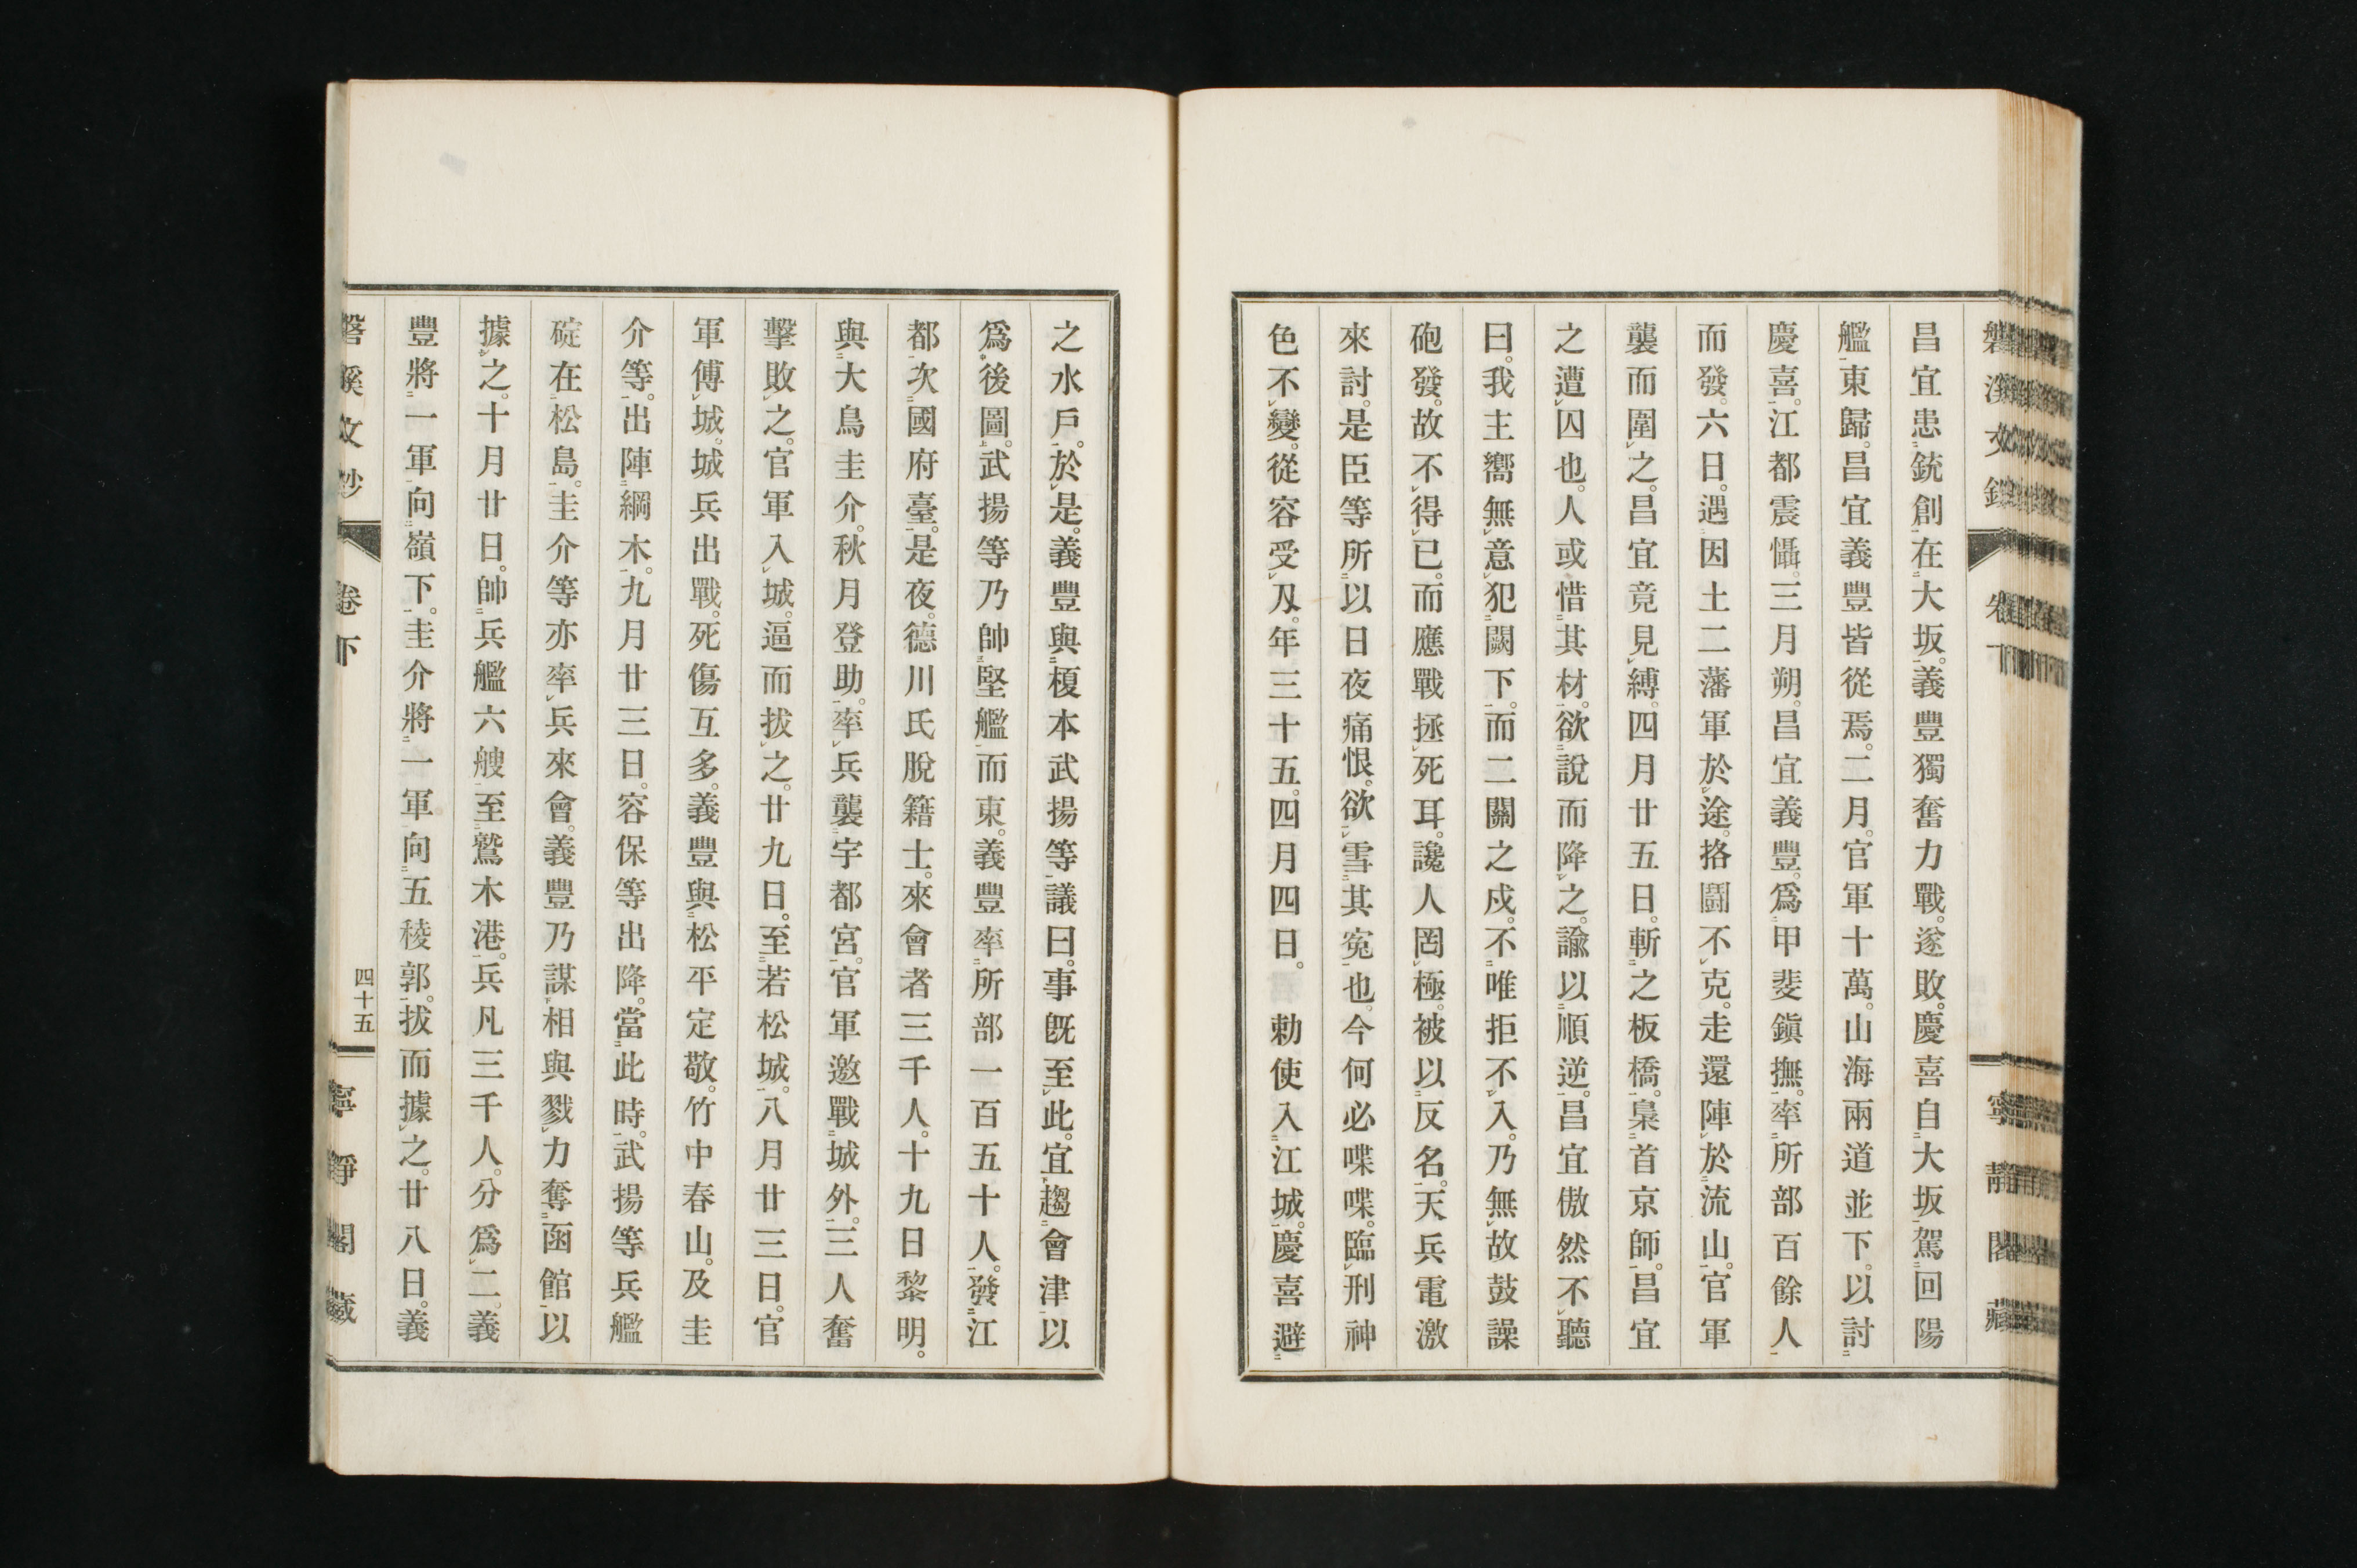 昌宜患銃創在大坂。義豐獨奮力戰。遂敗。慶喜自大坂駕回陽
艦東歸。昌宜義豐皆從焉。二月。官軍十萬。山海兩道並下。以討
慶喜。江都震慴。三月朔。昌宜義豐。爲甲斐鎭撫。率所部百餘人
而發。六日。遇因土二藩軍於途。挌鬪不克。走還陣於流山。官軍
襲而圍之。昌宜竟見縛。四月廿五日。斬之板橋。梟首京師。昌宜
之遭囚也。人或惜其材。欲說而降之。諭以順逆。昌宜傲然不聽
曰。我主嚮無意犯闕下。而二關之戍。不唯拒不入。乃無故鼓譟
砲發。故不得已。而應戰拯死耳。讒人罔極。被以反名。天兵電激
來討。是臣等所以日夜痛恨。欲雪其寃也。今何必喋喋。臨刑神
色不變。從容受刄。年三十五。四月四日。勅使入江城。慶喜避
之水戶。於是。義豐與榎本武揚等議曰。事旣至此。宜趨會津以
爲後圖。武揚等乃帥堅艦而東。義豐率所部一百五十人。發江
都次國府臺。是夜。德川氏脫籍士。來會者三千人。十九日黎明。
與大鳥圭介。秋月登助。率兵襲宇都宮。官軍邀戰城外。三人奮
擊敗之。官軍入城。逼而拔之。廿九日。至若松城。八月廿三日。官
軍傅城。城兵出戰。死傷互多。義豐與松平定敬。竹中春山。及圭
介等。出陣綱木。九月廿三日。容保等出降。當此時。武揚等兵艦
碇在松島。圭介等亦率兵來會。義豐乃謀相與戮力奪函館以
據之。十月廿日。帥兵艦六艘至鷲木港。兵凡三千人。分爲二。義
豐將一軍向嶺下。圭介將一軍向五稜郭。拔而據之。廿八日。義
卷下
四十五